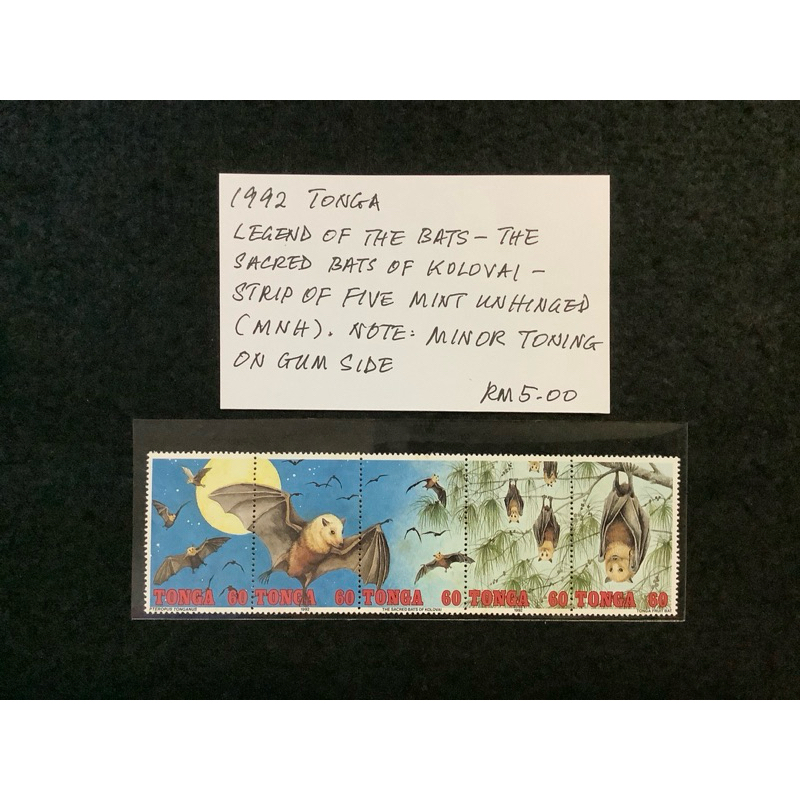 1992 TONGA
LEGEND OF THE BATS – THE
SACRED BATS OF KOLOVAI –
STRIP OF FIVE MINT UNHINGED
(MNH). NOTE: MINOR TONING
ON GUM SIDE
RM5.00
TONGA 60 TONGA 60 TONGA 60 TONGA 60 TONGA 60
PTEROPUS TONGANUS 1992 THE SACRED BATS OF KOLOVAI